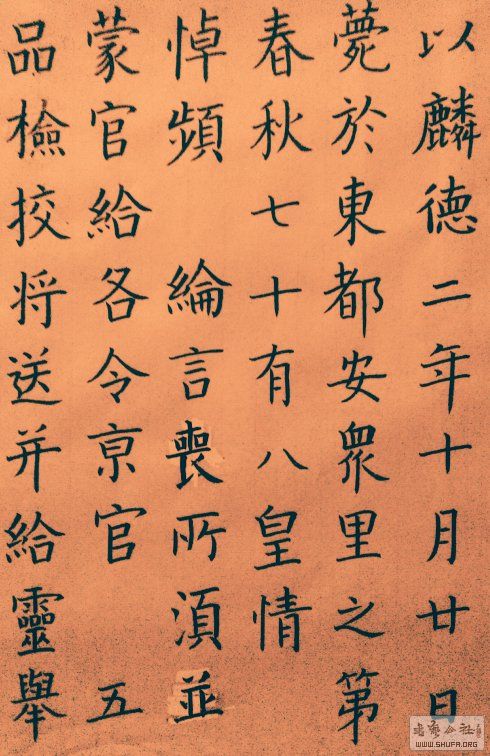 以麟德二年十月廿日
薨於東都安衆里之第
春秋七十有八皇情
悼頻 綸言喪所須並
蒙官給各令京官 五
品檢挍将送并給靈舉
WWW.SHUFA.ORG